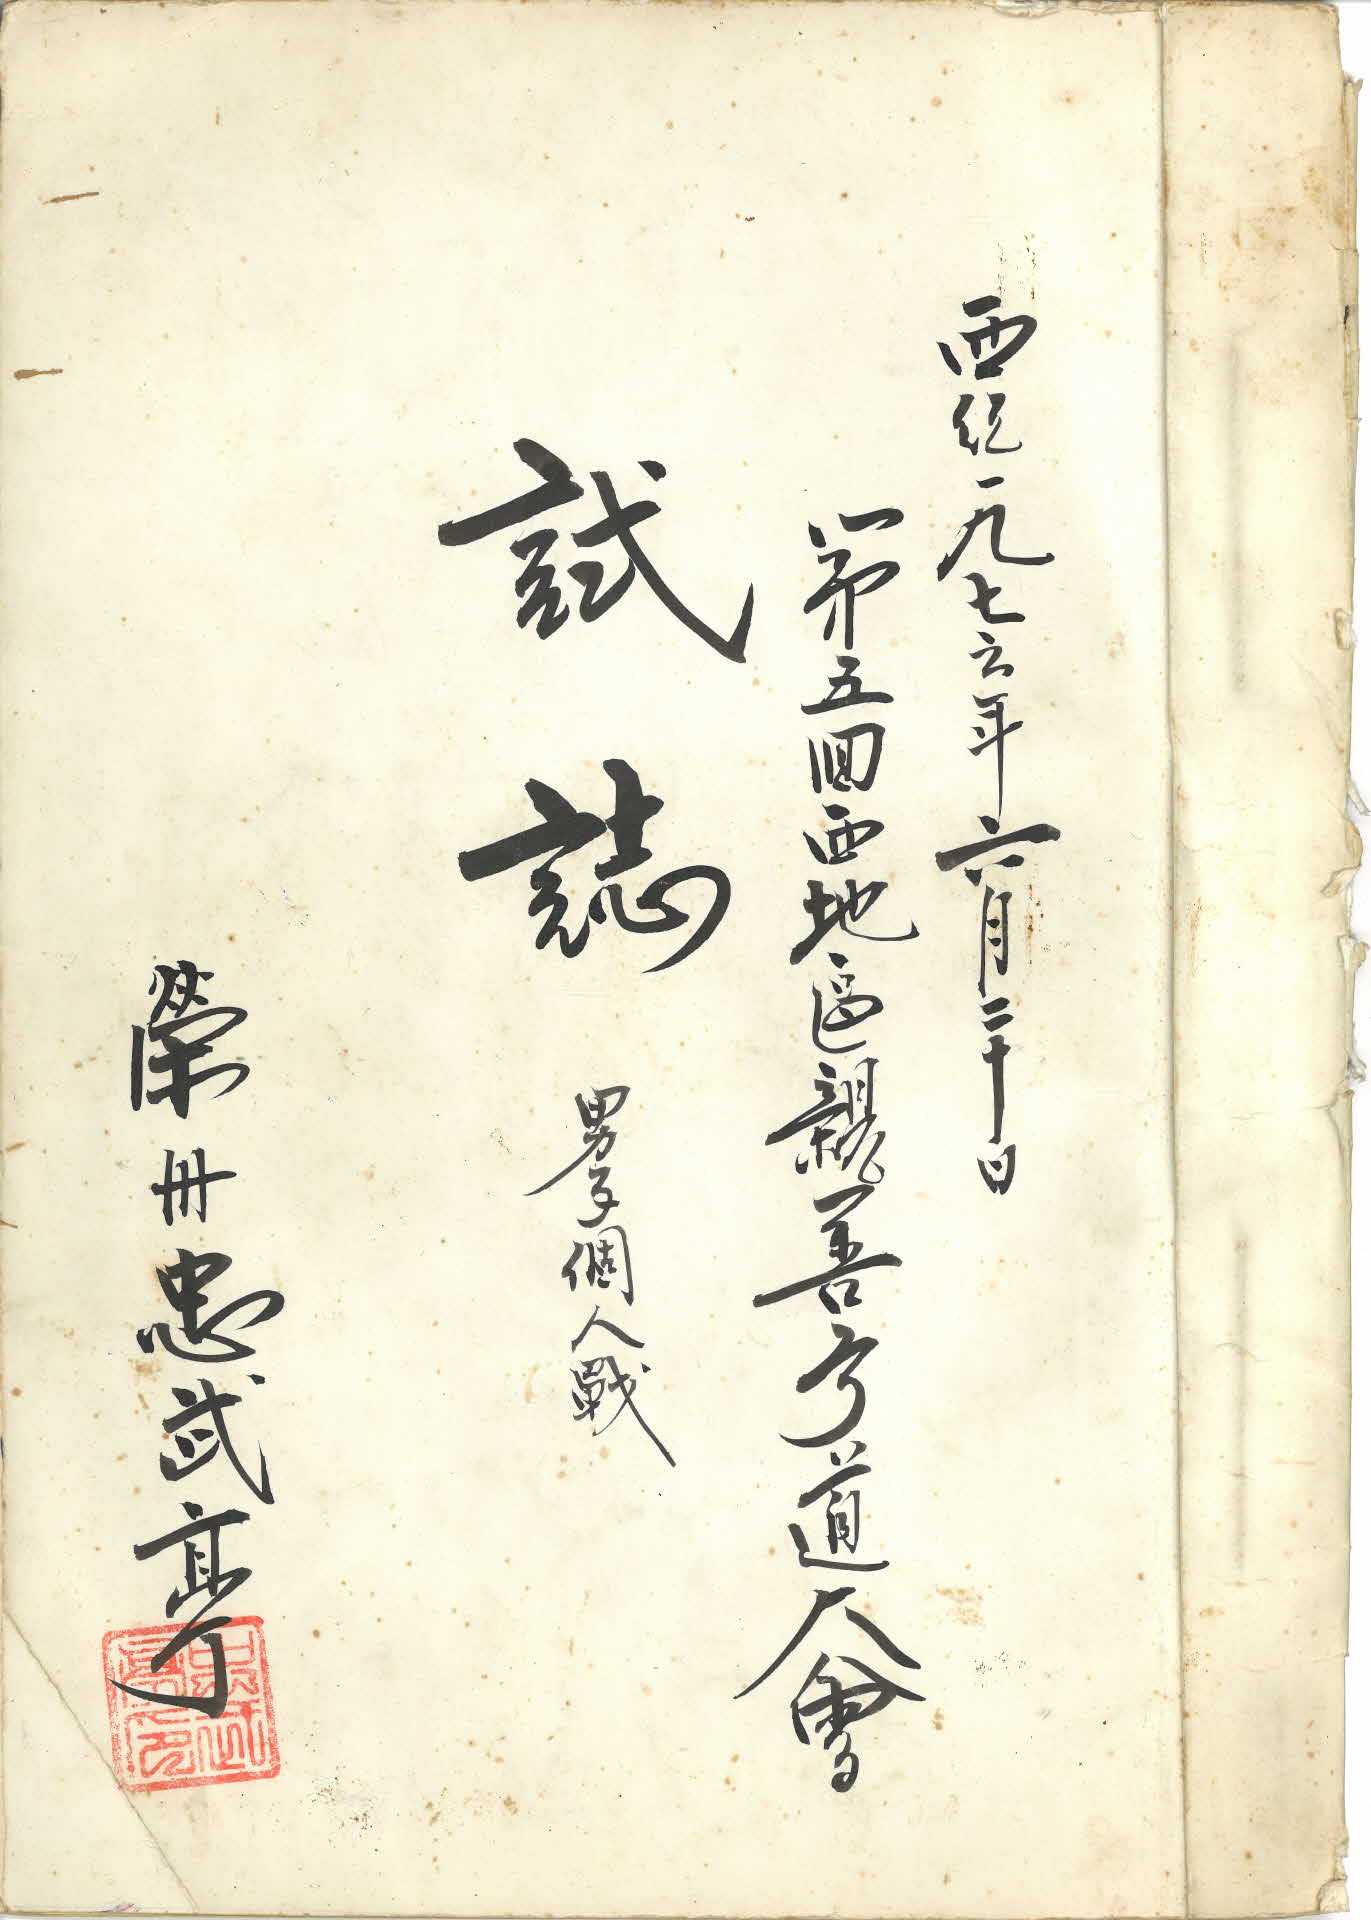 西紀一九七六年六月二十日
第五回西地區親善弓道大會
試誌
男子個人戰
榮州忠武亭
忠武亭印